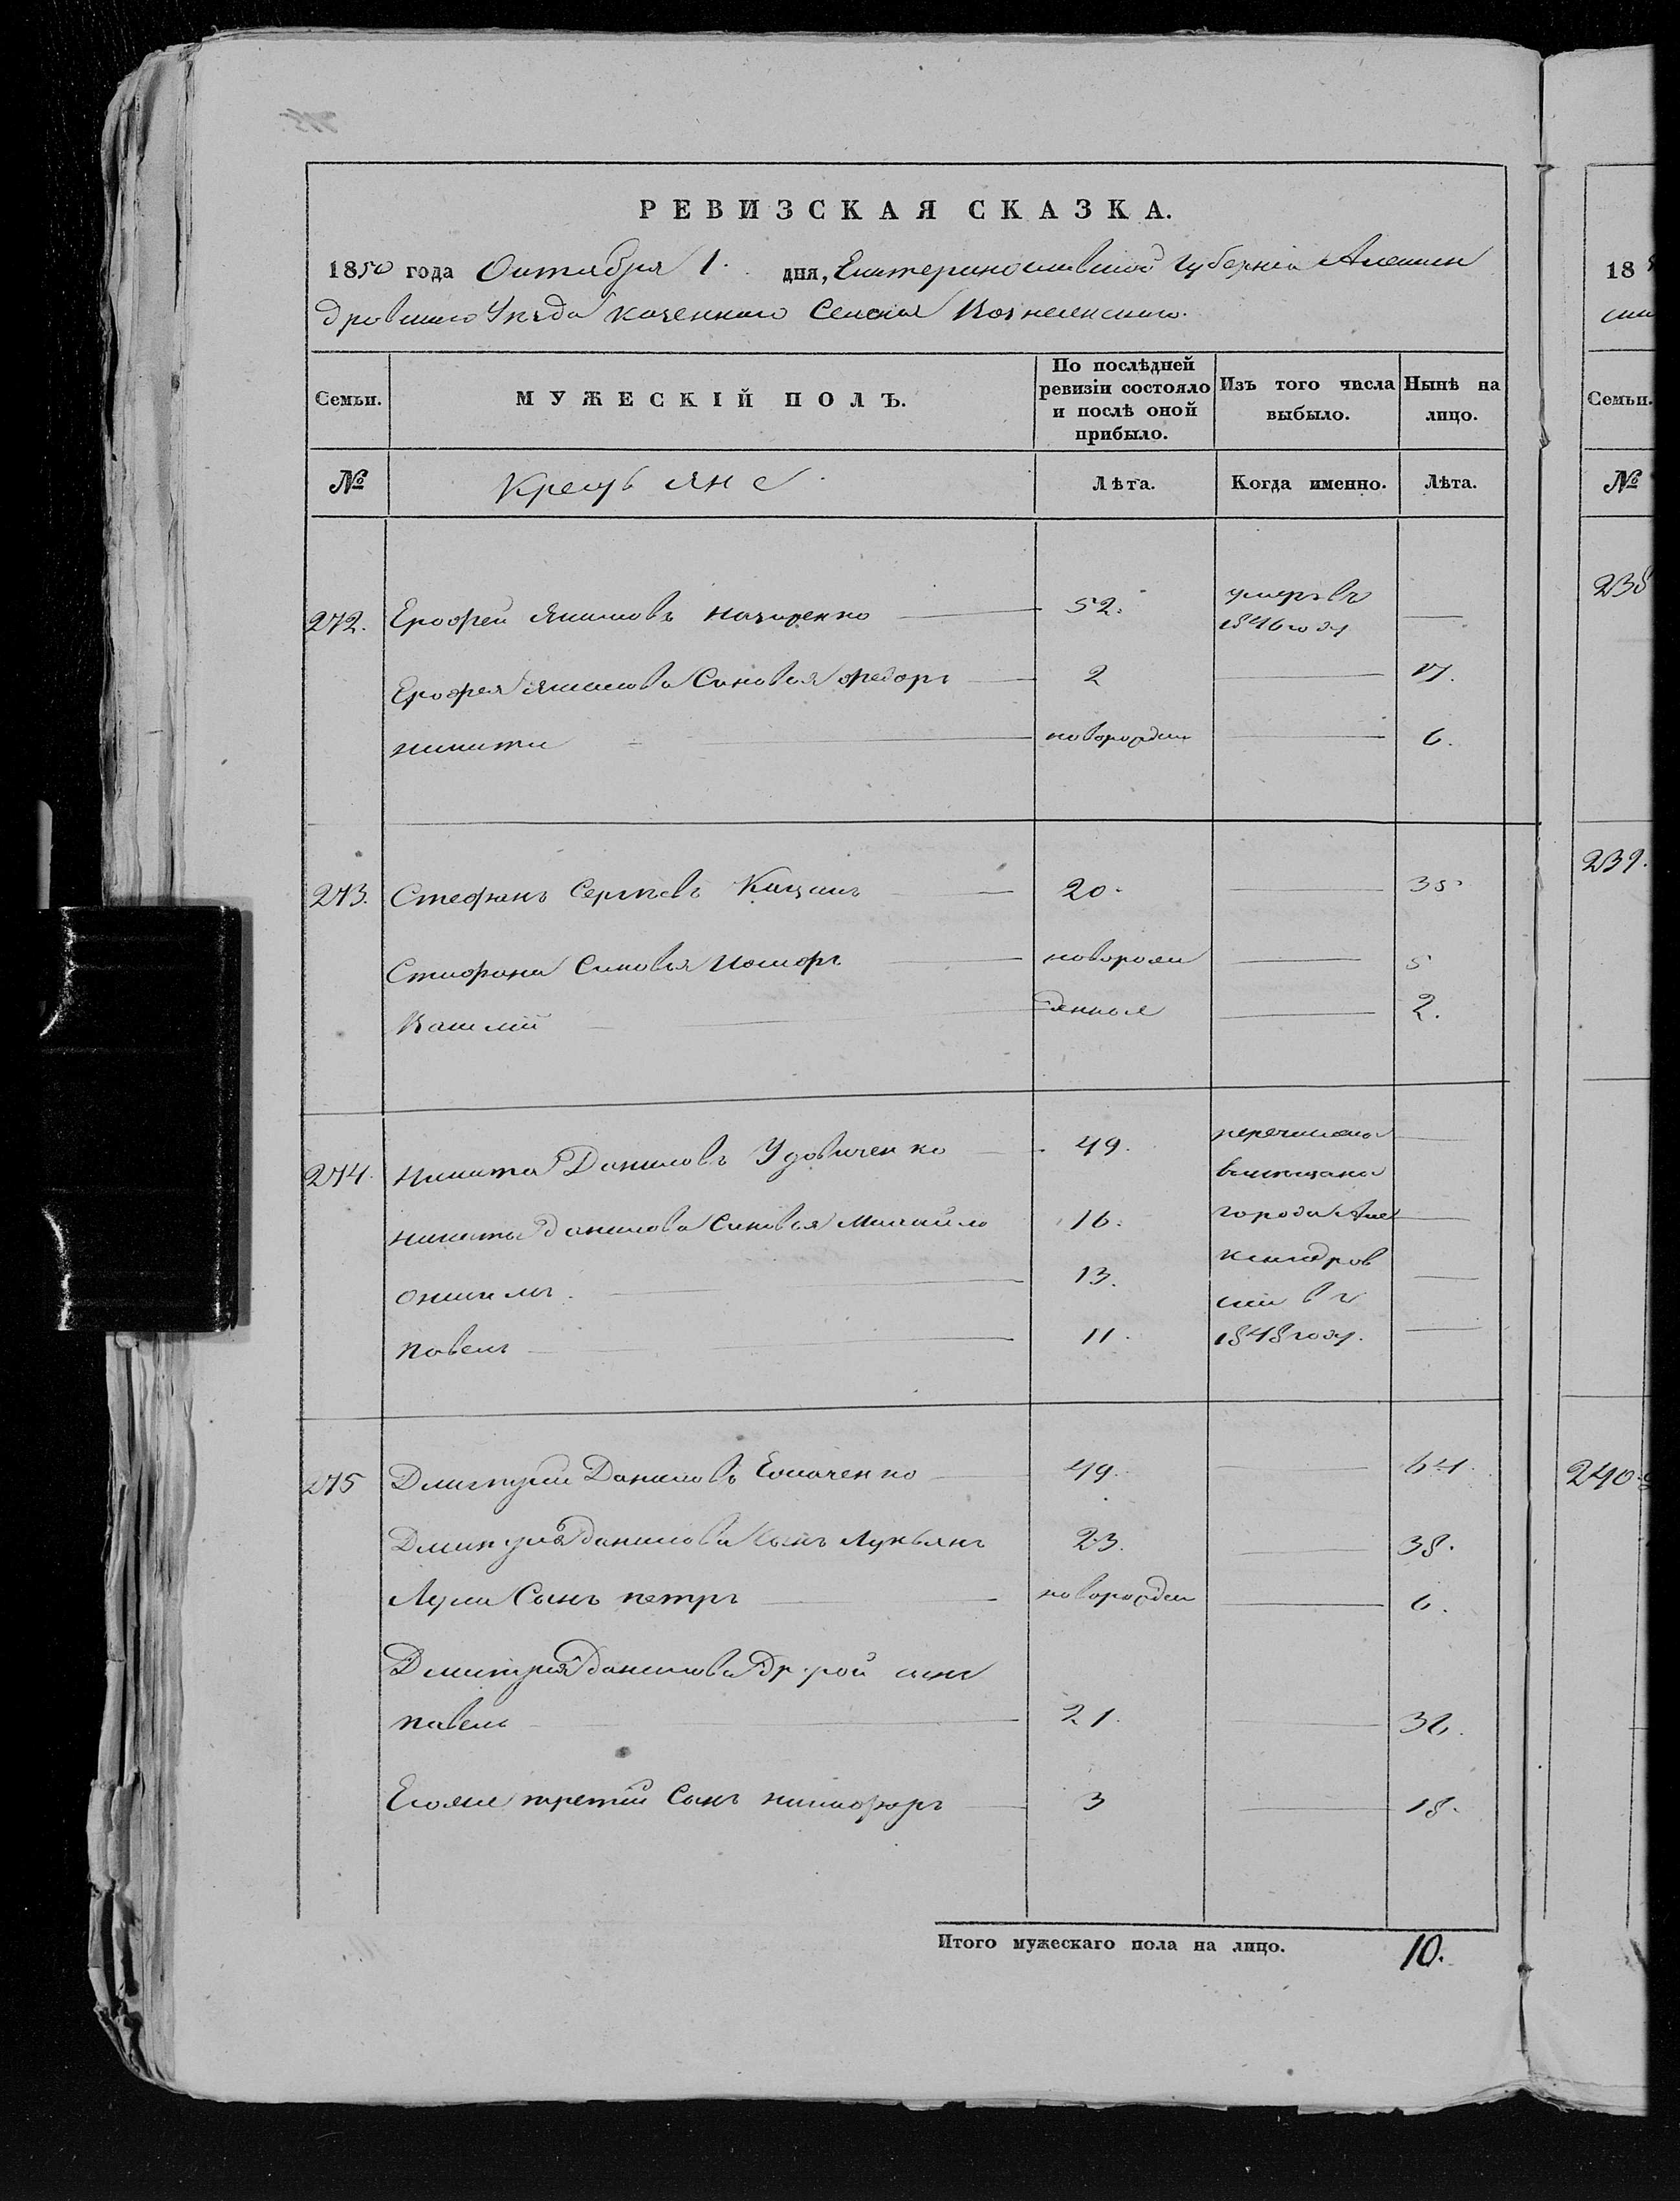 РЕВИЗСКАЯ СКАЗКА.
1850 года Октября 1. дня, Екатеринославской Губерніи Алексан
дровскаго Уѣзда казеннаго Селенія Вознесенскаго.
Семьи. МУЖЕСКІЙ ПОЛЪ. По послѣдней ревизіи состояло и послѣ оной прибыло. Изъ того числа выбыло. Нынѣ на лицо.
№ Крестьяне Лѣта. Когда именно. Лѣта.
272. Ерофей Якимовъ Назаренко 52. умеръ въ 1846 году
Ерофея Якимова Сыновья Федоръ 2 17.
Никита новорожден 6.
273. Стефанъ Сергѣевъ 20. 35.
Стефана Сыновья новорож 5
Василій денныя 2.
274. Никита Даниловъ Удовиченко 49. перечислены
в мѣщане
Никиты Данилова Сыновья Михайло 16. города Алек
Онисимъ. 13. сандров
ска въ
Павелъ 11. 1848 году.
275 Дмитрій Даниловъ 49. 64.
Дмитрія Данилова Сынъ Лукьянъ 23. 38.
Луки Сынъ Петръ новорожден 6.
Дмитрія Данилова Другой сынъ
Павелъ 21. 36.
Егоже третій Сынъ Никифоръ 3 18.
Итого мужескаго пола на лицо. 10.
18
Семьи.
№
238
239.
240.